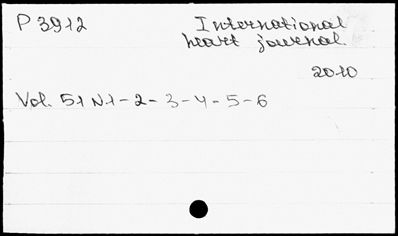 P 3912
International
heart journal.
2010
Vol. 51 N.1-2-3-4-5-6